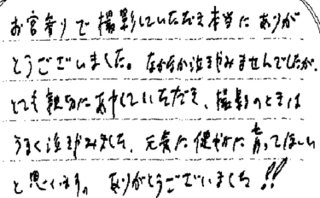 お宮参りで撮影していただき本当にありが
とうございました。なかなか泣きやみませんでしたが、
とても親切にあやしていただき、撮影のときは
うまく泣きやみました。元気に健やかに育ってほしい
と思います。ありがとうございました!!